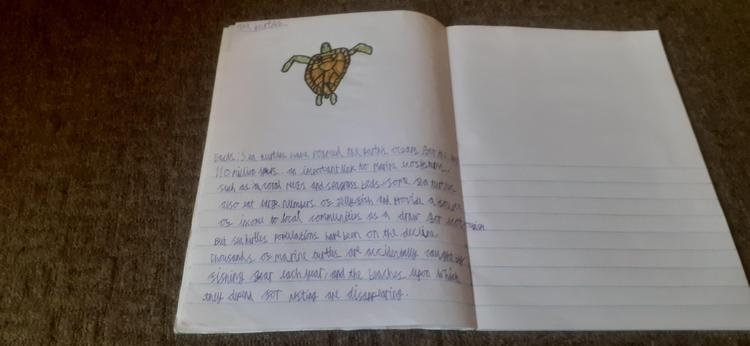 Sea turtles
Facts: Sea turtles have roamed the earths oceans for the last
110 million years. an important link to marine ecosystems
such as a coral reefs and seagrass beds. Some sea turtles
also eat large numbers of jellyfish and Provide a source
of income to local communities as a draw for ecotourism
But sea turtles populations have been on the decline
thousands of marine turtles are accidentally caught
fishing gear each year, and the beaches upon which
they depend for nesting are disappearing.